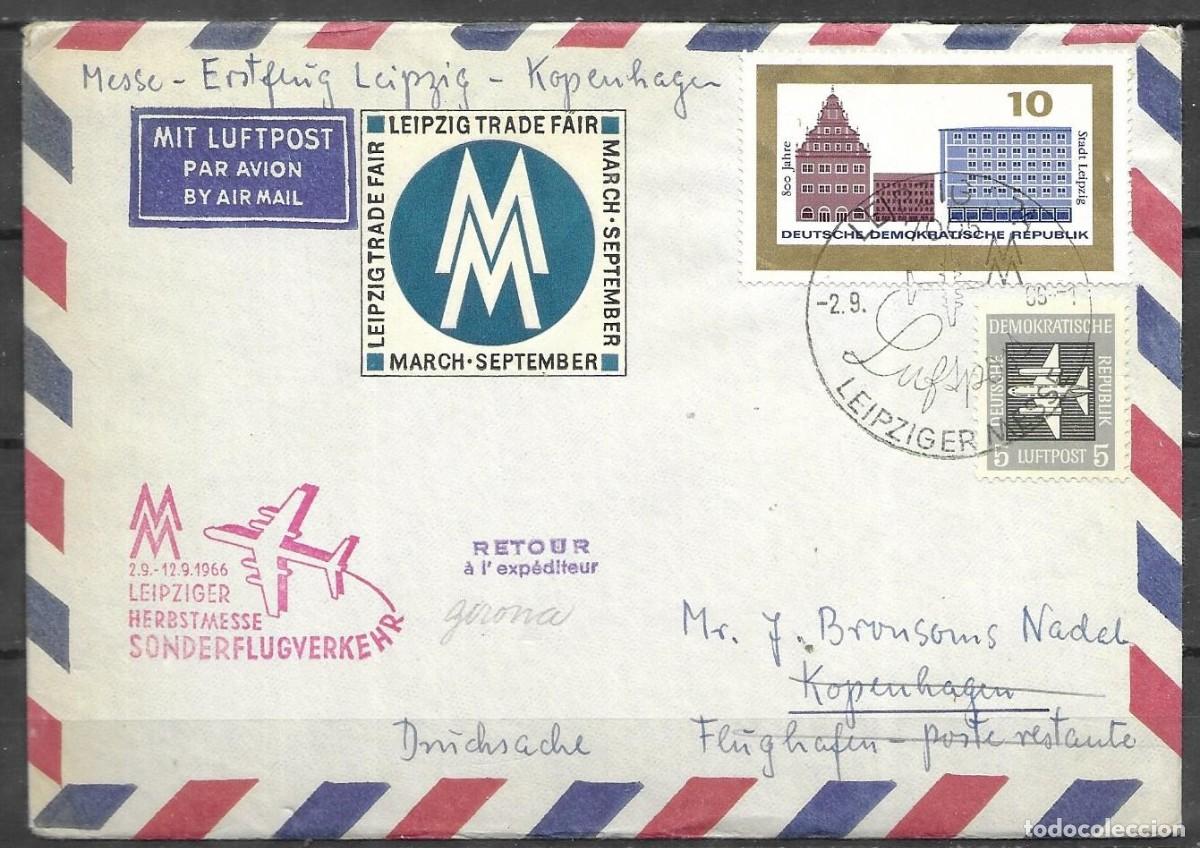 Messe - Erstflug Leipzig - Kopenhagen
MIT LUFTPOST
PAR AVION
BY AIR MAIL
LEIPZIG TRADE FAIR
LEIPZIG TRADE FAIR
MARCH · SEPTEMBER
MARCH · SEPTEMBER
10
800 Jahre
Stadt Leipzig
DEUTSCHE DEMOKRATISCHE REPUBLIK
7005
-2.9.
66-
Luftp
LEIPZIGER MESSE
DEMOKRATISCHE
DEUTSCHE
REPUBLIK
5 LUFTPOST 5
2.9.-12.9.1966
LEIPZIGER
HERBSTMESSE
SONDERFLUGVERKEHR
RETOUR
à l'expéditeur
gerona
Mr. J. Bronsoms Nadal
Kopenhagen
Drucksache
Flughafen - poste restante
todocoleccion